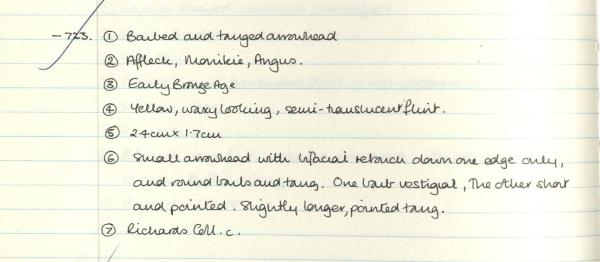 -723. ① Barbed and tanged arrowhead
② Affleck, Monikie, Angus.
③ Early Bronze Age
④ Yellow, waxy looking, semi-translucent flint.
⑤ 2.4cm x 1.7cm
⑥ Small arrowhead with bifacial retouch down one edge only,
and round barbs and tang. One barb vestigial, The other short
and pointed. Slightly longer, pointed tang.
⑦ Richards Coll. c.